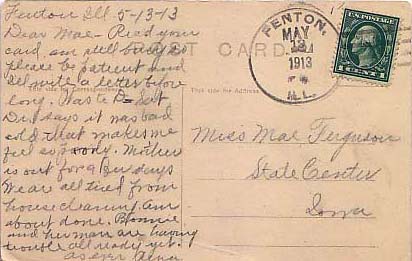 Fenton Ill. 5-13-13
Dear Mae- Rec'd your
card, am still busy so
please be patient and
I'll write a letter before
long. Was to Dr. Sat
Dr. says it was bad
cold that makes me
feel so poorly. Mother
is out for a few days
We are all tired from
house cleaning. Am
about done. Blonnie
and her man are having
trouble all ready yet.
As ever
POST CARD
This side for Correspondence
This side for Address.
FENTON,
MAY
13
1913
ILL.
U.S. POSTAGE
1 CENT 1
Miss Mae Ferguson
State Center
Iowa